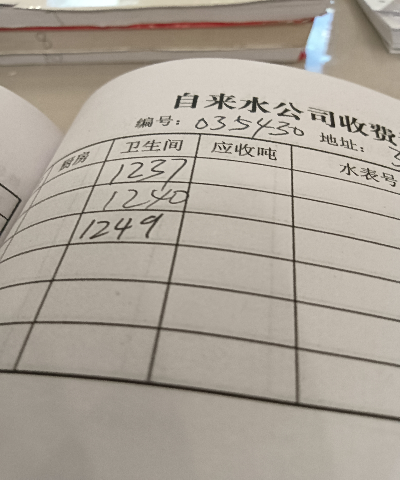 自来水公司收费
编号：035430 地址：
厨房 卫生间 应收吨 水表号
1237
1240
1249